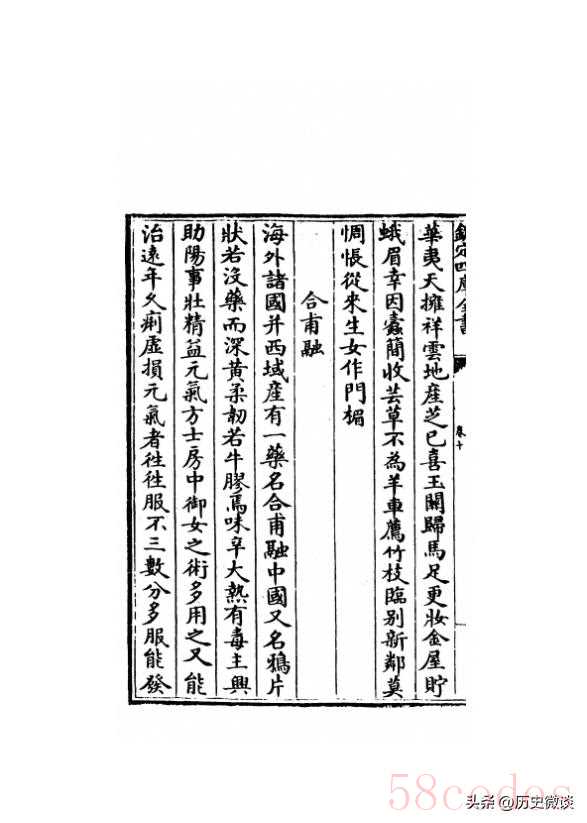 欽定四庫全書
卷十
華夷天擁祥雲地產芝已喜玉關歸馬足更妝金屋貯
蛾眉幸因蠹簡收芸草不為羊車薦竹枝臨別新鄰莫
惆悵從來生女作門楣
合甫融
海外諸國并西域產有一藥名合甫融中國又名鴉片
狀若沒藥而深黃柔韌若牛膠焉味辛大熱有毒主興
助陽事壯精益元氣方士房中御女之術多用之又能
治遠年久痢虛損元氣者往往服不三數分多服能發
58codes
头条 @历史微谈